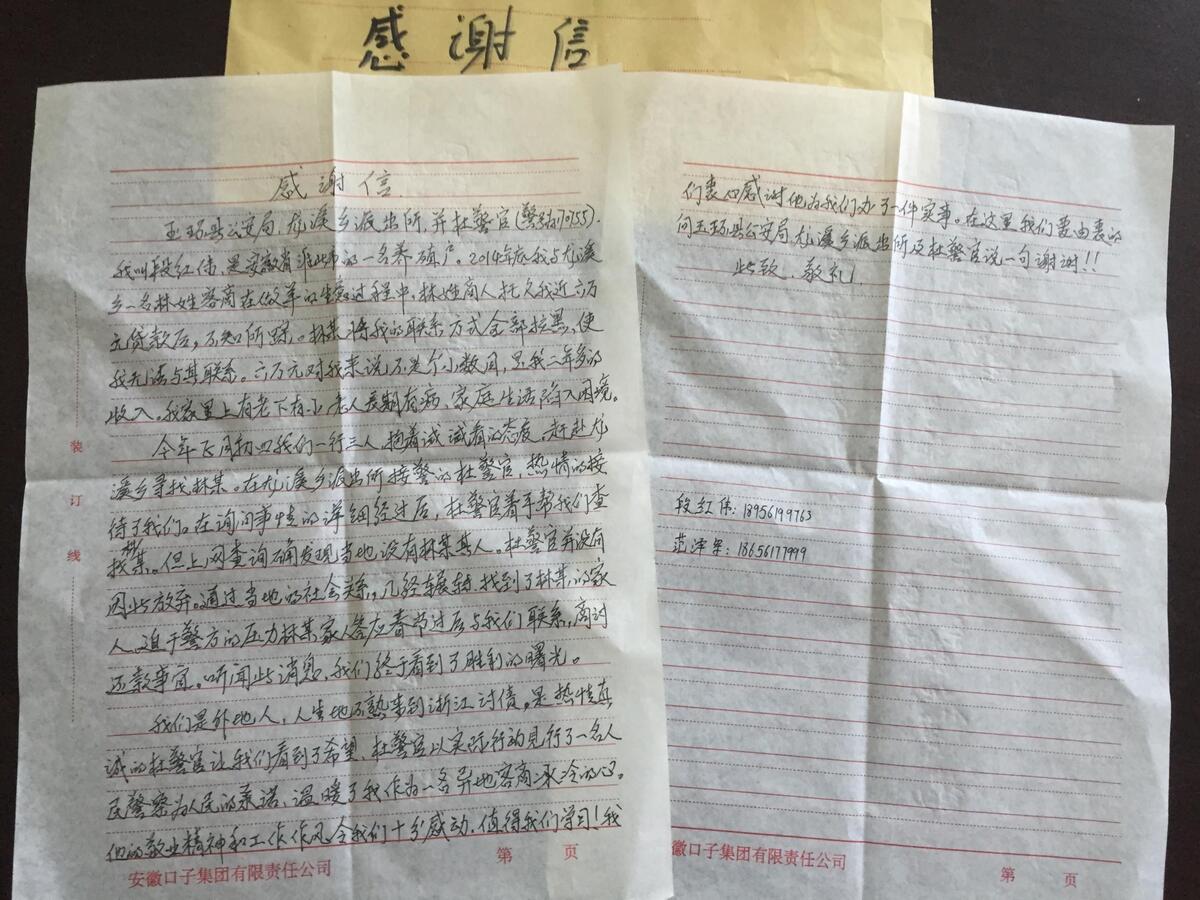 感谢信
感谢信
玉环县公安局,龙溪乡派出所,并杜警官(警号
我叫段红伟,是安徽省淮北市的一名养殖户。2014年底我与龙溪
乡一名林姓客商在做羊的生意过程中,林姓商人托欠我近六万
元货款后,不知所踪。林某将我的联系方式全部拉黑,使
我无法与其联系。六万元对我来说不是个小数目,是我二年多的
收入。我家里上有老下有小,老人长期有病,家庭生活陷入困境。
今年正月初四我们一行三人,抱着试试看的态度,赶赴龙
溪乡寻找林某。在龙溪乡派出所接警的杜警官,热情的接
待了我们。在询问事情的详细经过后,杜警官着手帮我们查
找林某。但上网查询确发现当地没有林某其人。杜警官并没有
因此放弃。通过当地的社会关系,几经辗转,找到了林某的家
人,迫于警方的压力林某家人答应春节过后与我们联系,商讨
还款事宜。听闻此消息,我们终于看到了胜利的曙光。
我们是外地人,人生地不熟来到浙江讨债,是热情真
诚的杜警官让我们看到了希望,杜警官以实际行动见行了一名人
民警察为人民的承诺,温暖了我作为一名异地客商冰冷的心。
他的敬业精神和工作作风令我们十分感动,值得我们学习!我
安徽口子集团有限责任公司 第 页
装
订
线
们衷心感谢他为我们办了一件实事。在这里我们要由衷的
向玉环县公安局龙溪乡派出所及杜警官说一句谢谢!!
此致,敬礼!
段红伟:18956199763
范泽军:18656177999
徽口子集团有限责任公司 第 页